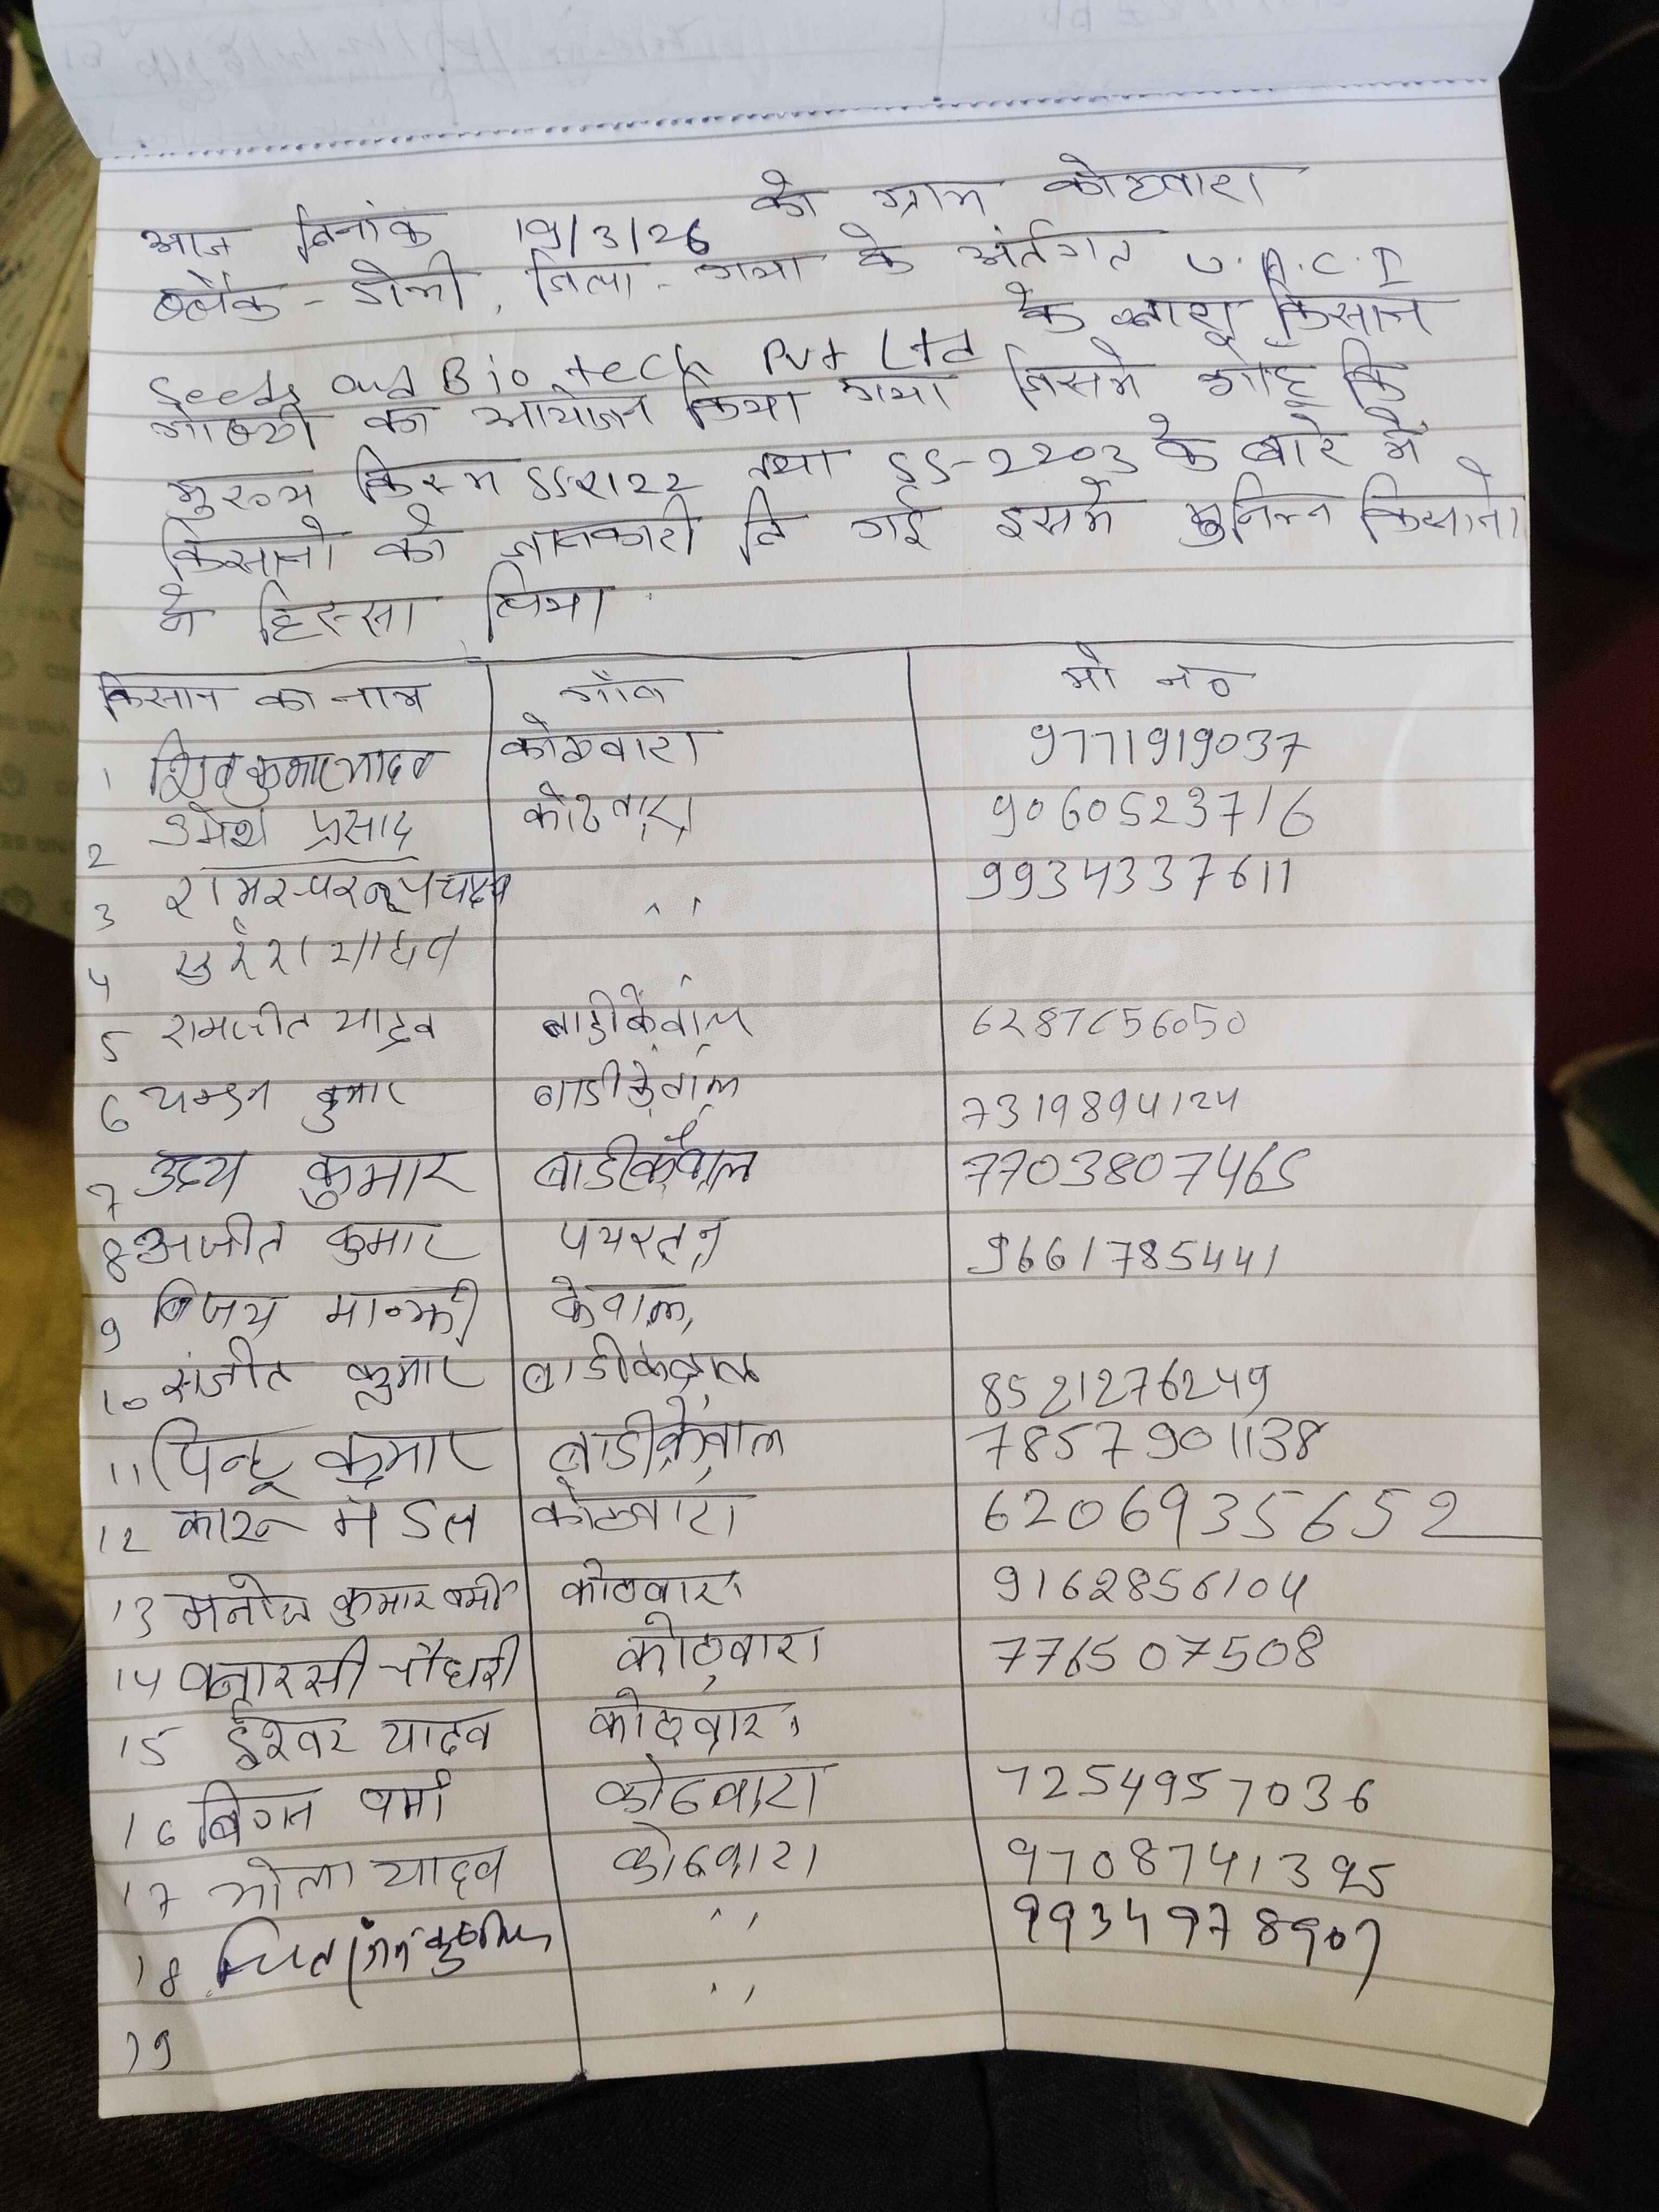 आज दिनांक 19/3/26 को ग्राम कोठवारा
ब्लॅक - डोभी, जिला - गया के अंर्तगत U.A.C.I
Seeds and Bio tech Pvt Ltd के किसान
गोष्ठी का आयोजन किया गया जिसमे गेहू कि
मुख्य किस्म SSR122 तथा SS-2203 के बारे में
किसानो को जानकारी दि गई इसमे निम्न किसानो
ने हिस्सा लिया
किसान का नाम गाँव मो न०
1 शिव कुमार यादव कोठवारा 9771919037
2 उमेश प्रसाद कोठवारा 9060523716
3 रामस्वरूप यादव ,, 9934337611
4 सुरेश यादव
5 रामजीत यादव बाडीकेवाल 6287656050
6 चन्दन कुमार बाडीकेवाल 7319894124
7 उदय कुमार बाडीकेवाल 7703807465
8 अजीत कुमार 9661785441
9 विजय मान्झी केवाल
10 संजीत कुमार बाडीकेवाल 8521276249
11 पिन्टू कुमार बाडीकेवाल 7857901138
12 कारू मंडल कोठवारा 6206935652
13 मनोज कुमार वर्मा कोठवारा 9162856104
14 बनारसी चौधरी कोठवारा 776507508
15 ईश्वर यादव कोठवारा
16 बिगन वर्मा कोठवारा 7254957036
17 भोला यादव कोठवारा 9708741395
18 ,, 9934978907
19 ,,